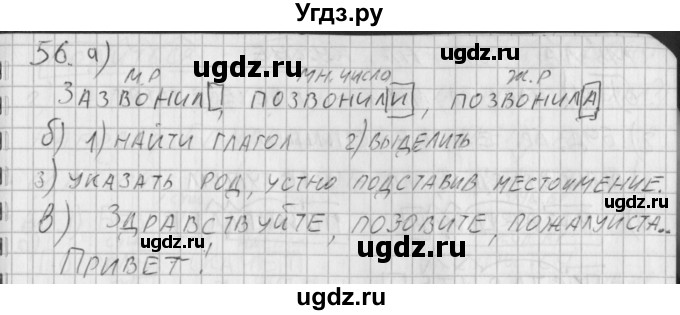 Угдз.ру
56. а)
М.Р МН. ЧИСЛО Ж.Р
ЗАЗВОНИЛ, ПОЗВОНИЛИ, ПОЗВОНИЛА
б) 1) НАЙТИ ГЛАГОЛ 2) ВЫДЕЛИТЬ
3) УКАЗАТЬ РОД, УСТНО ПОДСТАВИВ МЕСТОИМЕНИЕ.
В) ЗДРАВСТВУЙТЕ, ПОЗОВИТЕ, ПОЖАЛУЙСТА..
ПРИВЕТ!
ugdz.ru
ugdz.ru
ugdz.ru
ugdz.ru
ugdz.ru
ugdz.ru
ugdz.ru
ugdz.ru